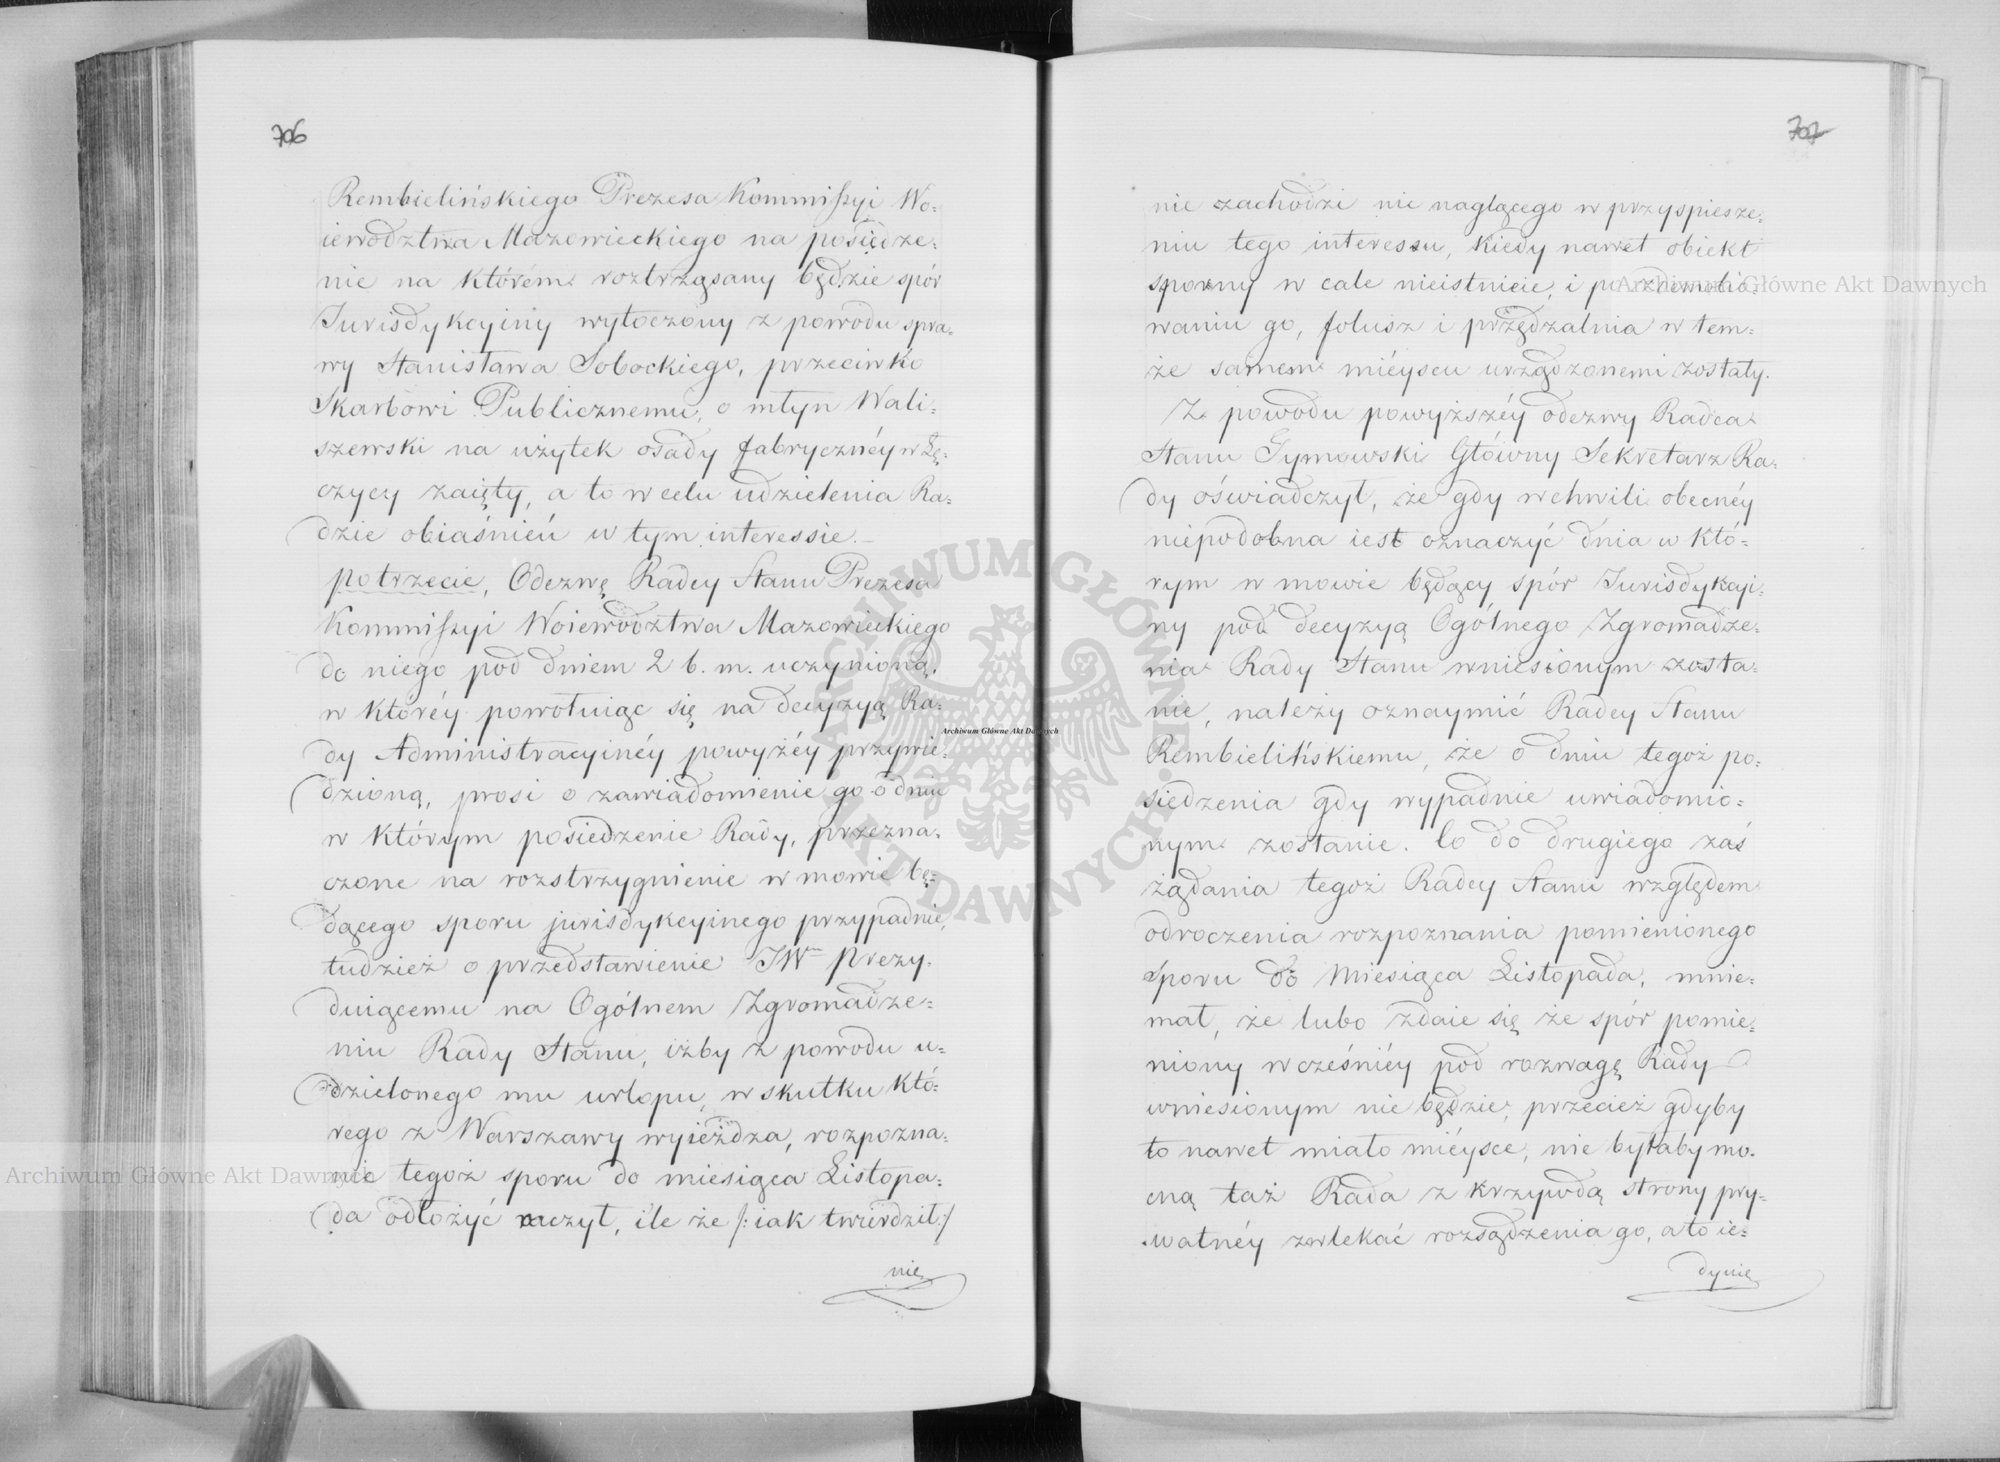 706
Rembielińskiego Prezesa Kommissyi Wo=
iewodztwa Mazowieckiego na posiedze=
nie na którém roztrząsany będzie spór
Jurisdykcyiny wytoczony z powodu spra=
wy Stanisława Sobockiego, przeciwko
Skarbowi Publicznemu, o młyn Wali=
szewski na użytek osady fabrycznéy w Łę=
czycy zaięty, a to w celu udzielenia Ra=
dzie obiaśnień w tym interessie.—
potrzecie, Odezwę Radcy Stanu Prezesa
Kommissyi Woiewodztwa Mazowieckiego
do niego pod dniem 2 b. m. uczynioną,
w któréy powołuiąc się na decyzyą Ra=
dy Administracyinéy powyżéy przywie=
dzioną, prosi o zawiadomienie go o dniu
w którym posiedzenie Rady, przezna=
czone na rozstrzygnienie w mowie bę=
dącego sporu jurisdykcyinego przypadnie,
tudzież o przedstawienie JWm Prezy=
duiącemu na Ogólnem Zgromadze=
niu Rady Stanu, iżby z powodu u=
dzielonego mu urlopu, w skutku któ=
rego z Warszawy wyieżdza, rozpozna=
nie tegoż sporu do miesiąca Listopa=
da odłożyć raczył, ile że /: iak twierdził :/
nie
707
nie zachodzi nic naglącego w przyspiesze=
niu tego interessu, kiedy nawet obiekt
sporny w cale nieistnieie, i po zdemolio=
waniu go, folusz i przędzalnia w tem=
że samem miéyscu urządzonemi zostały.
Z powodu powyższéy odezwy Radca
Stanu Tymowski Główny Sekretarz Ra=
dy oświadczył, że gdy w chwili obecnéy
niepodobna iest oznaczyć dnia w któ=
rym w mowie będący spór Jurisdykcyi=
ny pod decyzyą Ogólnego Zgromadze=
nia Rady Stanu wniesionym zosta=
nie, należy oznaymić Radcy Stanu
Rembielińskiemu, że o dniu tegoż po=
siedzenia gdy wypadnie uwiadomio=
nym zostanie. Co do drugiego zaś
żądania tegoż Radcy Stanu względem
odroczenia rozpoznania pomienionego
sporu do Miesiąca Listopada, mnie=
mał, że lubo zdaie się że spór pomie=
niony wcześniéy pod rozwagę Rady
wniesionym nie będzie, przecież gdyby
to nawet miało miéysce, nie byłaby mo=
cną taż Rada z krzywdą strony pry=
watnéy zwlekać rozsądzenia go, a to ie=
dynie
Archiwum Główne Akt Dawnych
Archiwum Główne Akt Dawnych
Archiwum Główne Akt Dawnych
ARCHIWUM GŁÓWNE AKT DAWNYCH